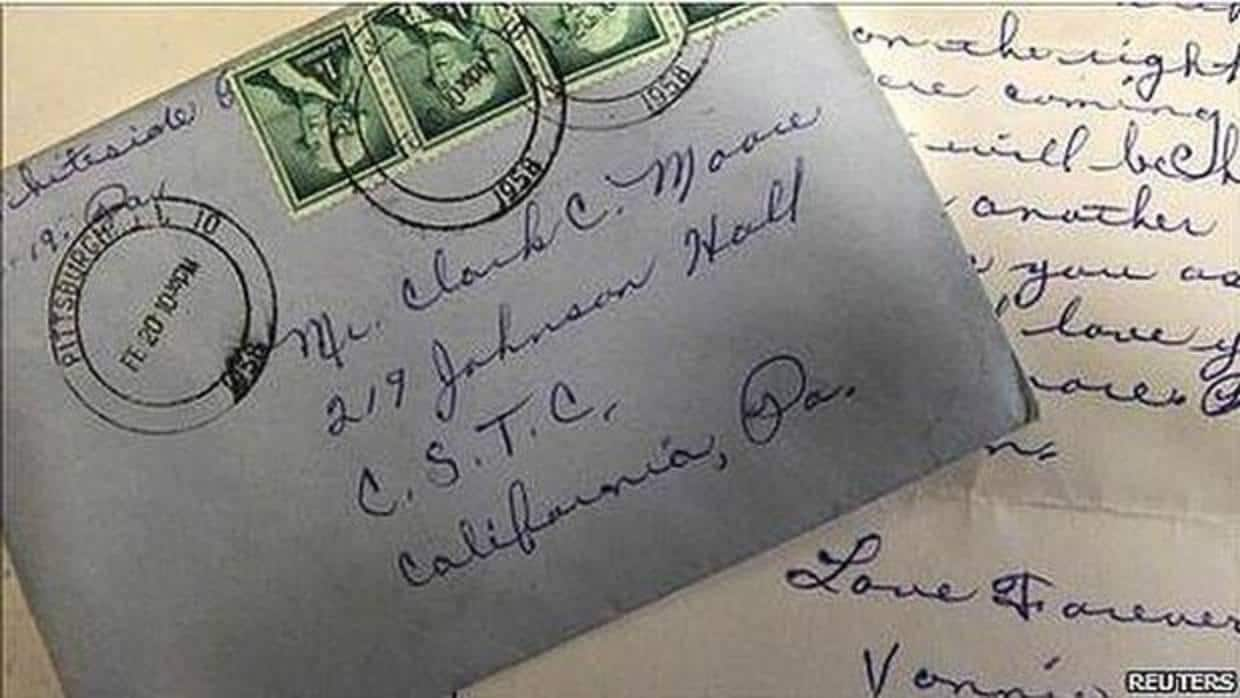 hiteside
19, Pa.
PITTSBURGH 10
FE 20 10 PM
1958
1958
1958
Mr. Clark C. Moore
219 Johnson Hall
C. S. T. C.
California, Pa.
on the right
are coming
will be th
another
you as
love y
Love Forever
Vonni
REUTERS